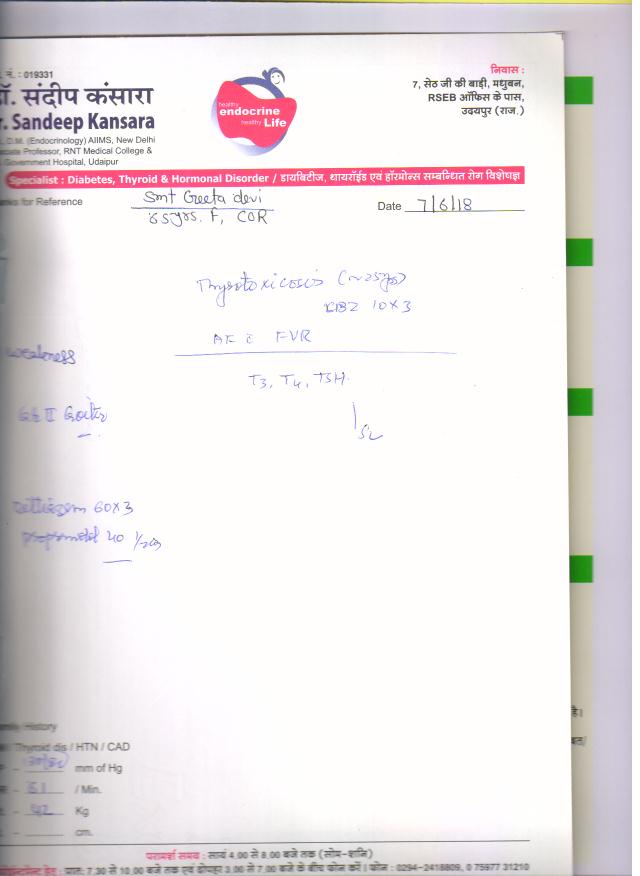 नं. : 019331
डॉ. संदीप कंसारा
r. Sandeep Kansara
D.M. (Endocrinology) AIIMS, New Delhi
Professor, RNT Medical College &
Government Hospital, Udaipur
healthy
endocrine
healthy Life
निवास :
7, सेठ जी की बाड़ी, मधुबन,
RSEB ऑफिस के पास,
उदयपुर (राज.)
Specialist : Diabetes, Thyroid & Hormonal Disorder / डायबिटीज, थायरॉईड एवं हॉरमोन्स सम्बन्धित रोग विशेषज्ञ
for Reference
Smt Geeta devi
65yrs. F, COR
Date 7/6/18
Thyrotoxicosis
10x3
FVR
weakness
T3, T4, TSH
Gr II Goitre
Diltiazem 60x3
40
History
Thyroid dis / HTN / CAD
mm of Hg
/ Min.
42 Kg
cm.
है।
परामर्श समय : सायं 4.00 से 8.00 बजे तक (सोम-शनि)
प्रात: 7.30 से 10.00 बजे तक एवं दोपहर 3.00 से 7.00 बजे के बीच फोन करें। फोन : 0294-2418809, 0 75977 31210